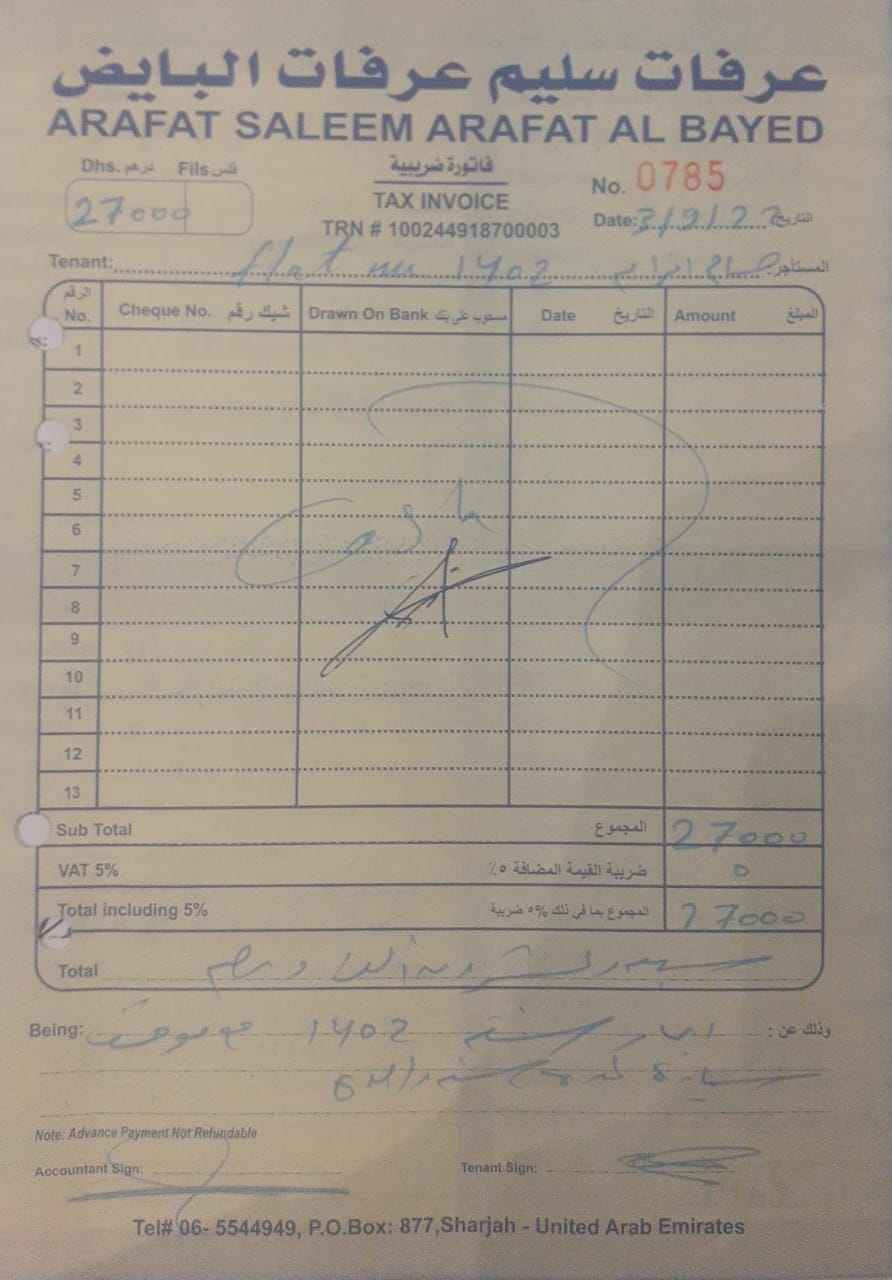 عرفات سليم عرفات البايض
ARAFAT SALEEM ARAFAT AL BAYED
Dhs. درهم Fils فلس
27000
فاتورة ضريبية
TAX INVOICE
TRN # 100244918700003
No. 0785
Date: 3/9/2 التاريخ
Tenant: flat 1402 المستأجر:
الرقم No. Cheque No. شيك رقم Drawn On Bank مسحوب على بنك Date التاريخ Amount المبلغ
1
2
3
4
5
6
Cash
7
8
9
10
11
12
13
Sub Total المجموع 27000
VAT 5% ضريبة القيمة المضافة ٥٪ 0
Total including 5% المجموع بما في ذلك ٥% ضريبة 27000
Total سبعة وعشرون ألف درهم
Being: ايجار شقة 1402 مع موقف وذلك عن:
سيارة لمدة
Note: Advance Payment Not Refundable
Accountant Sign: Tenant Sign:
Tel# 06- 5544949, P.O.Box: 877,Sharjah - United Arab Emirates